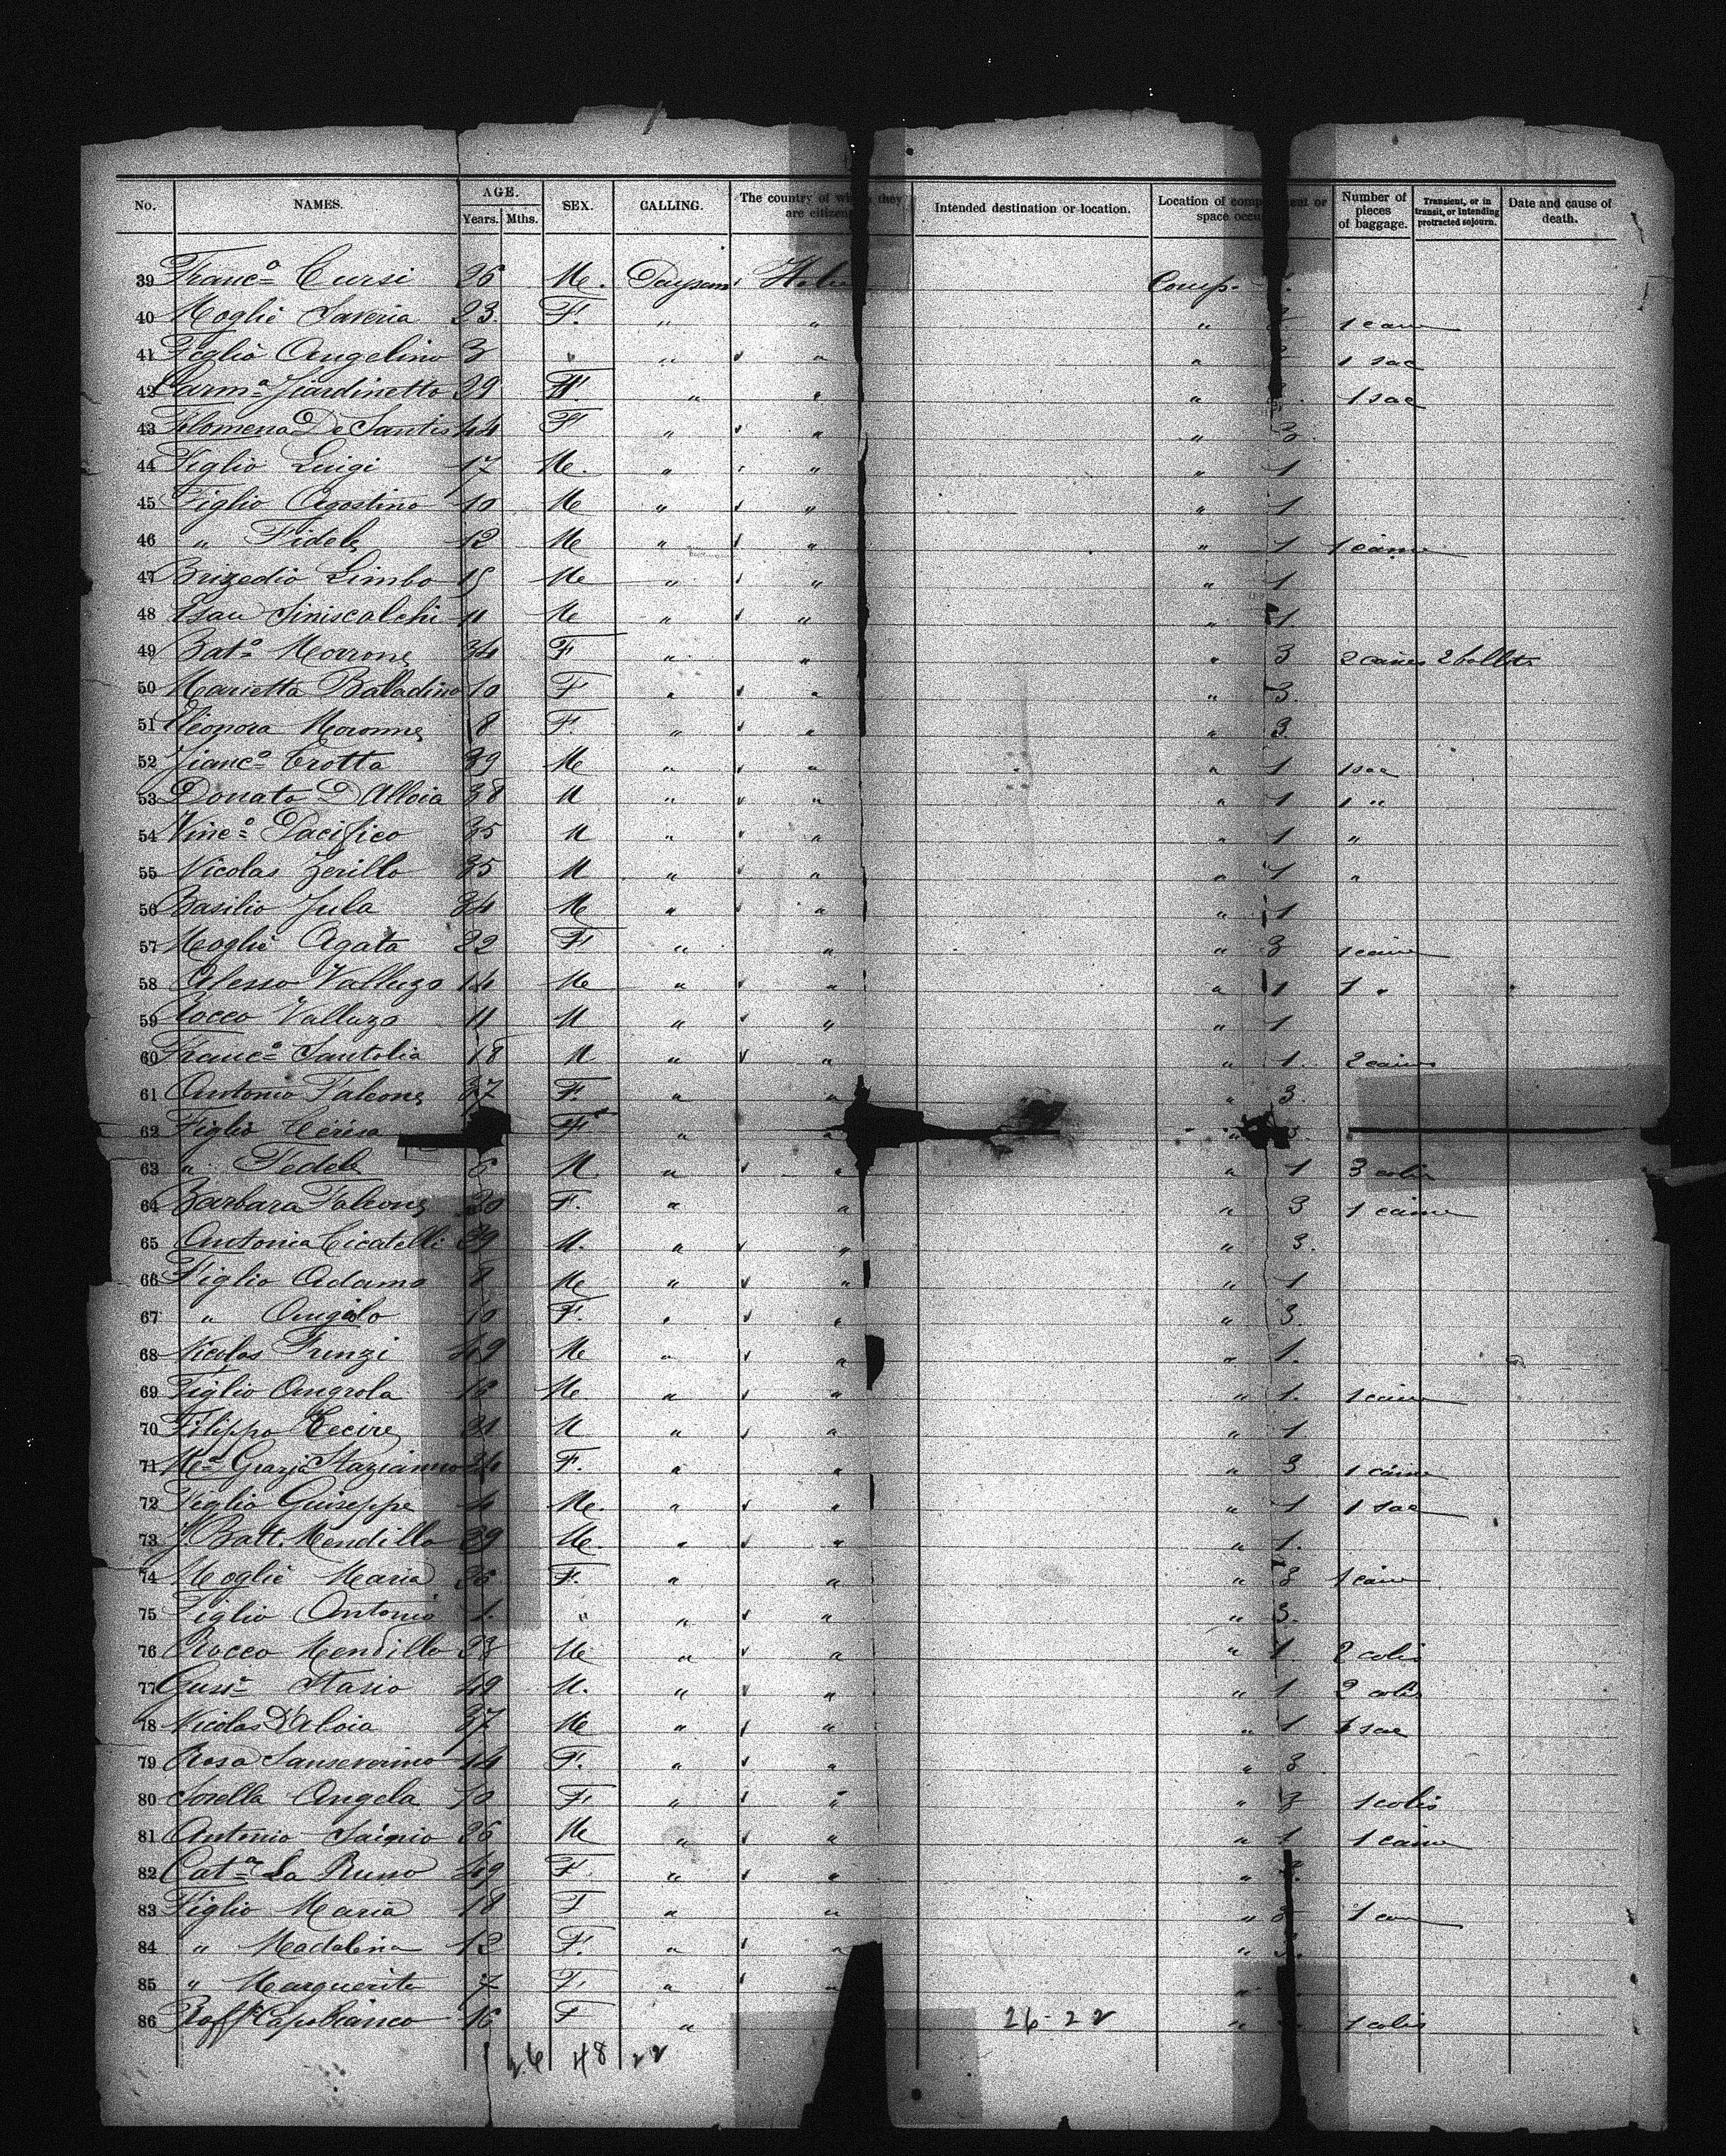 No. NAMES. AGE. Years. Mths. SEX. CALLING. The country of which they are citizens Intended destination or location. Location of compartment or space occupied Number of pieces of baggage. Transient, or in transit, or intending protracted sojourn. Date and cause of death.
39 Franc=o Cursi 26 Me. Paysan Italie Comp.
40 Moglie Saveria 23 F. " " " 1 caisse
41 Figlio Angelino 3 " " " " 1 sac
42 Carm=a Giardinetto 29 " " " 1 sac
43 Filomena De Santis 44 F " " " 3.
44 Figlio Luigi 17 Me. " " " 1
45 Figlio Agostino 10 Me " " " 1
46 " Fidele 12 Me " " " 1 1 caisse
47 Brizedio Limbo 15 Me " " " 1
48 Esau Siniscalchi 11 Me " " " 1
49 Bat=a Morrone 34 F " " " 3 2 caisses 2 ballots
50 Marietta Balladino 10 F " " " 3.
51 Eleonora Moronne 8 F. " " " 3.
52 Franc=o Trotta 39 Me " " " 1 1 sac
53 Donato D'Alloia 38 M " " " 1 1 "
54 Vinc=o Pacifico 35 M " " " 1 "
55 Nicolas Zerillo 35 M " " " 1 "
56 Basilio Jula 34 Me " " " 1
57 Moglie Agata 22 F " " " 3 1 caisse
58 Alesso Valluzo 14 Me " " " 1 1 "
59 Rocco Valluzo 11 M " " " 1
60 Franc=o Santolia 18 M " " " 1. 2 caisses
61 Antonio Falcone 37 F. " " " 3.
62 Figlio Cerisa F " " "
63 " Fedele 6 M " " " 1 3 colis
64 Barbara Falcone 20 F. " " " 3 1 caisse
65 Antonia Cicatelli 39 M. " " " 3.
66 Figlio Adamo 8 Me " " " 1
67 " Angelo 10 F. " " " 3.
68 Nicolas Frunzi 49 Me " " " 1.
69 Figlio Angrola Me " " " 1. 1 caisse
70 Filippo Lecire 31 M " " " 1
71 M=a Grazia 34 F. " " " 3 1 caisse
72 Figlio Guiseppe 4 Me. " " " 1 1 sac
73 J. Batt. Mendillo 39 Me. " " " 1.
74 Moglie Maria F. " " " 3 1 caisse
75 Figlio Antonio 1. " " " " 3.
76 Rocco Mendillo 23 Me " " " 1. 2 colis
77 Stasio 49 M. " " " 1 2 colis
78 Nicolas D'Aloia 37 Me " " " 1 1 sac
79 Rosa Sanseverino 14 F. " " " 3
80 Sorella Angela 10 F " " " 3 1 colis
81 Antonio 26 Me " " " 1 1 caisse
82 Cat=a La Russo 49 F " " "
83 Figlio Maria 18 F " " "
84 " Madalina 12 F. " " "
85 " Marguerite 7 F " " "
86 Raff=e Capobianco 16 F " " 1 colis
26-22
26 48 22